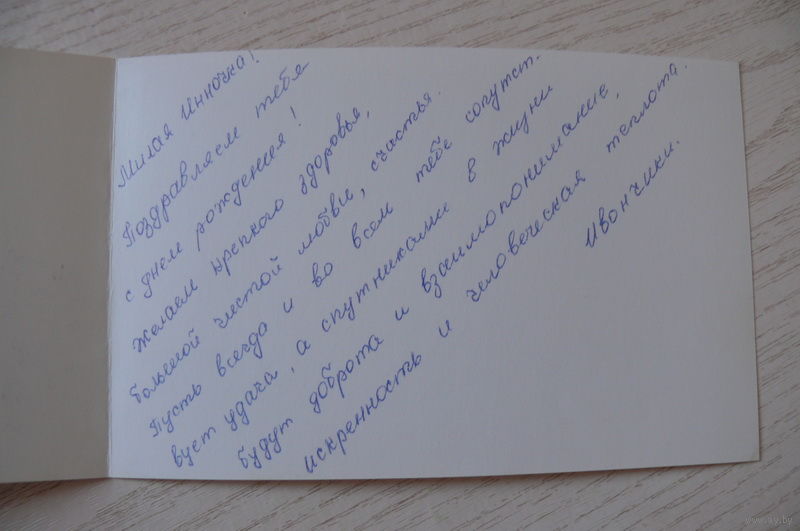 Милая Инночка!
Поздравляем тебя
с днем рождения!
Желаем крепкого здоровья,
большой чистой любви, счастья.
Пусть всегда и во всем тебе сопутст.
вует удача, а спутниками в жизни
будут доброта и взаимопонимание,
искренность и человеческая теплота.
Ивончики.
www.ay.by